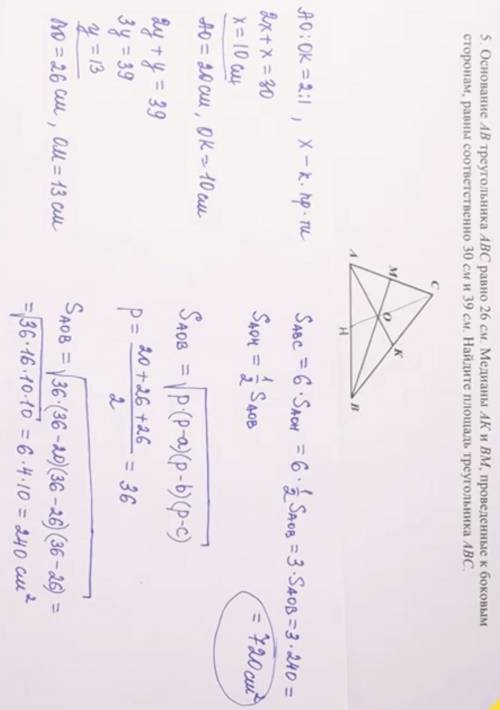 5. Основание AB треугольника ABC равно 26 см. Медианы AK и BM, проведенные к боковым
сторонам, равны соответственно 30 см и 39 см. Найдите площадь треугольника ABC.
C
M
K
O
A
H
B
AO:OK = 2:1 , x – к. пр-ти
2x + x = 30
x = 10 см
AO = 20 см , OK = 10 см
2y + y = 39
3y = 39
y = 13
BO = 26 см , OM = 13 см
S_ABC = 6 · S_AOH = 6 · 1/2 S_AOB = 3 · S_AOB = 3 · 240 =
= 720 см²
S_AOH = 1/2 S_AOB
S_AOB = √p·(p-a)(p-b)(p-c)
p = (20 + 26 + 26)/2 = 36
S_AOB = √36·(36-20)(36-26)(36-26) =
= √36·16·10·10 = 6·4·10 = 240 см²